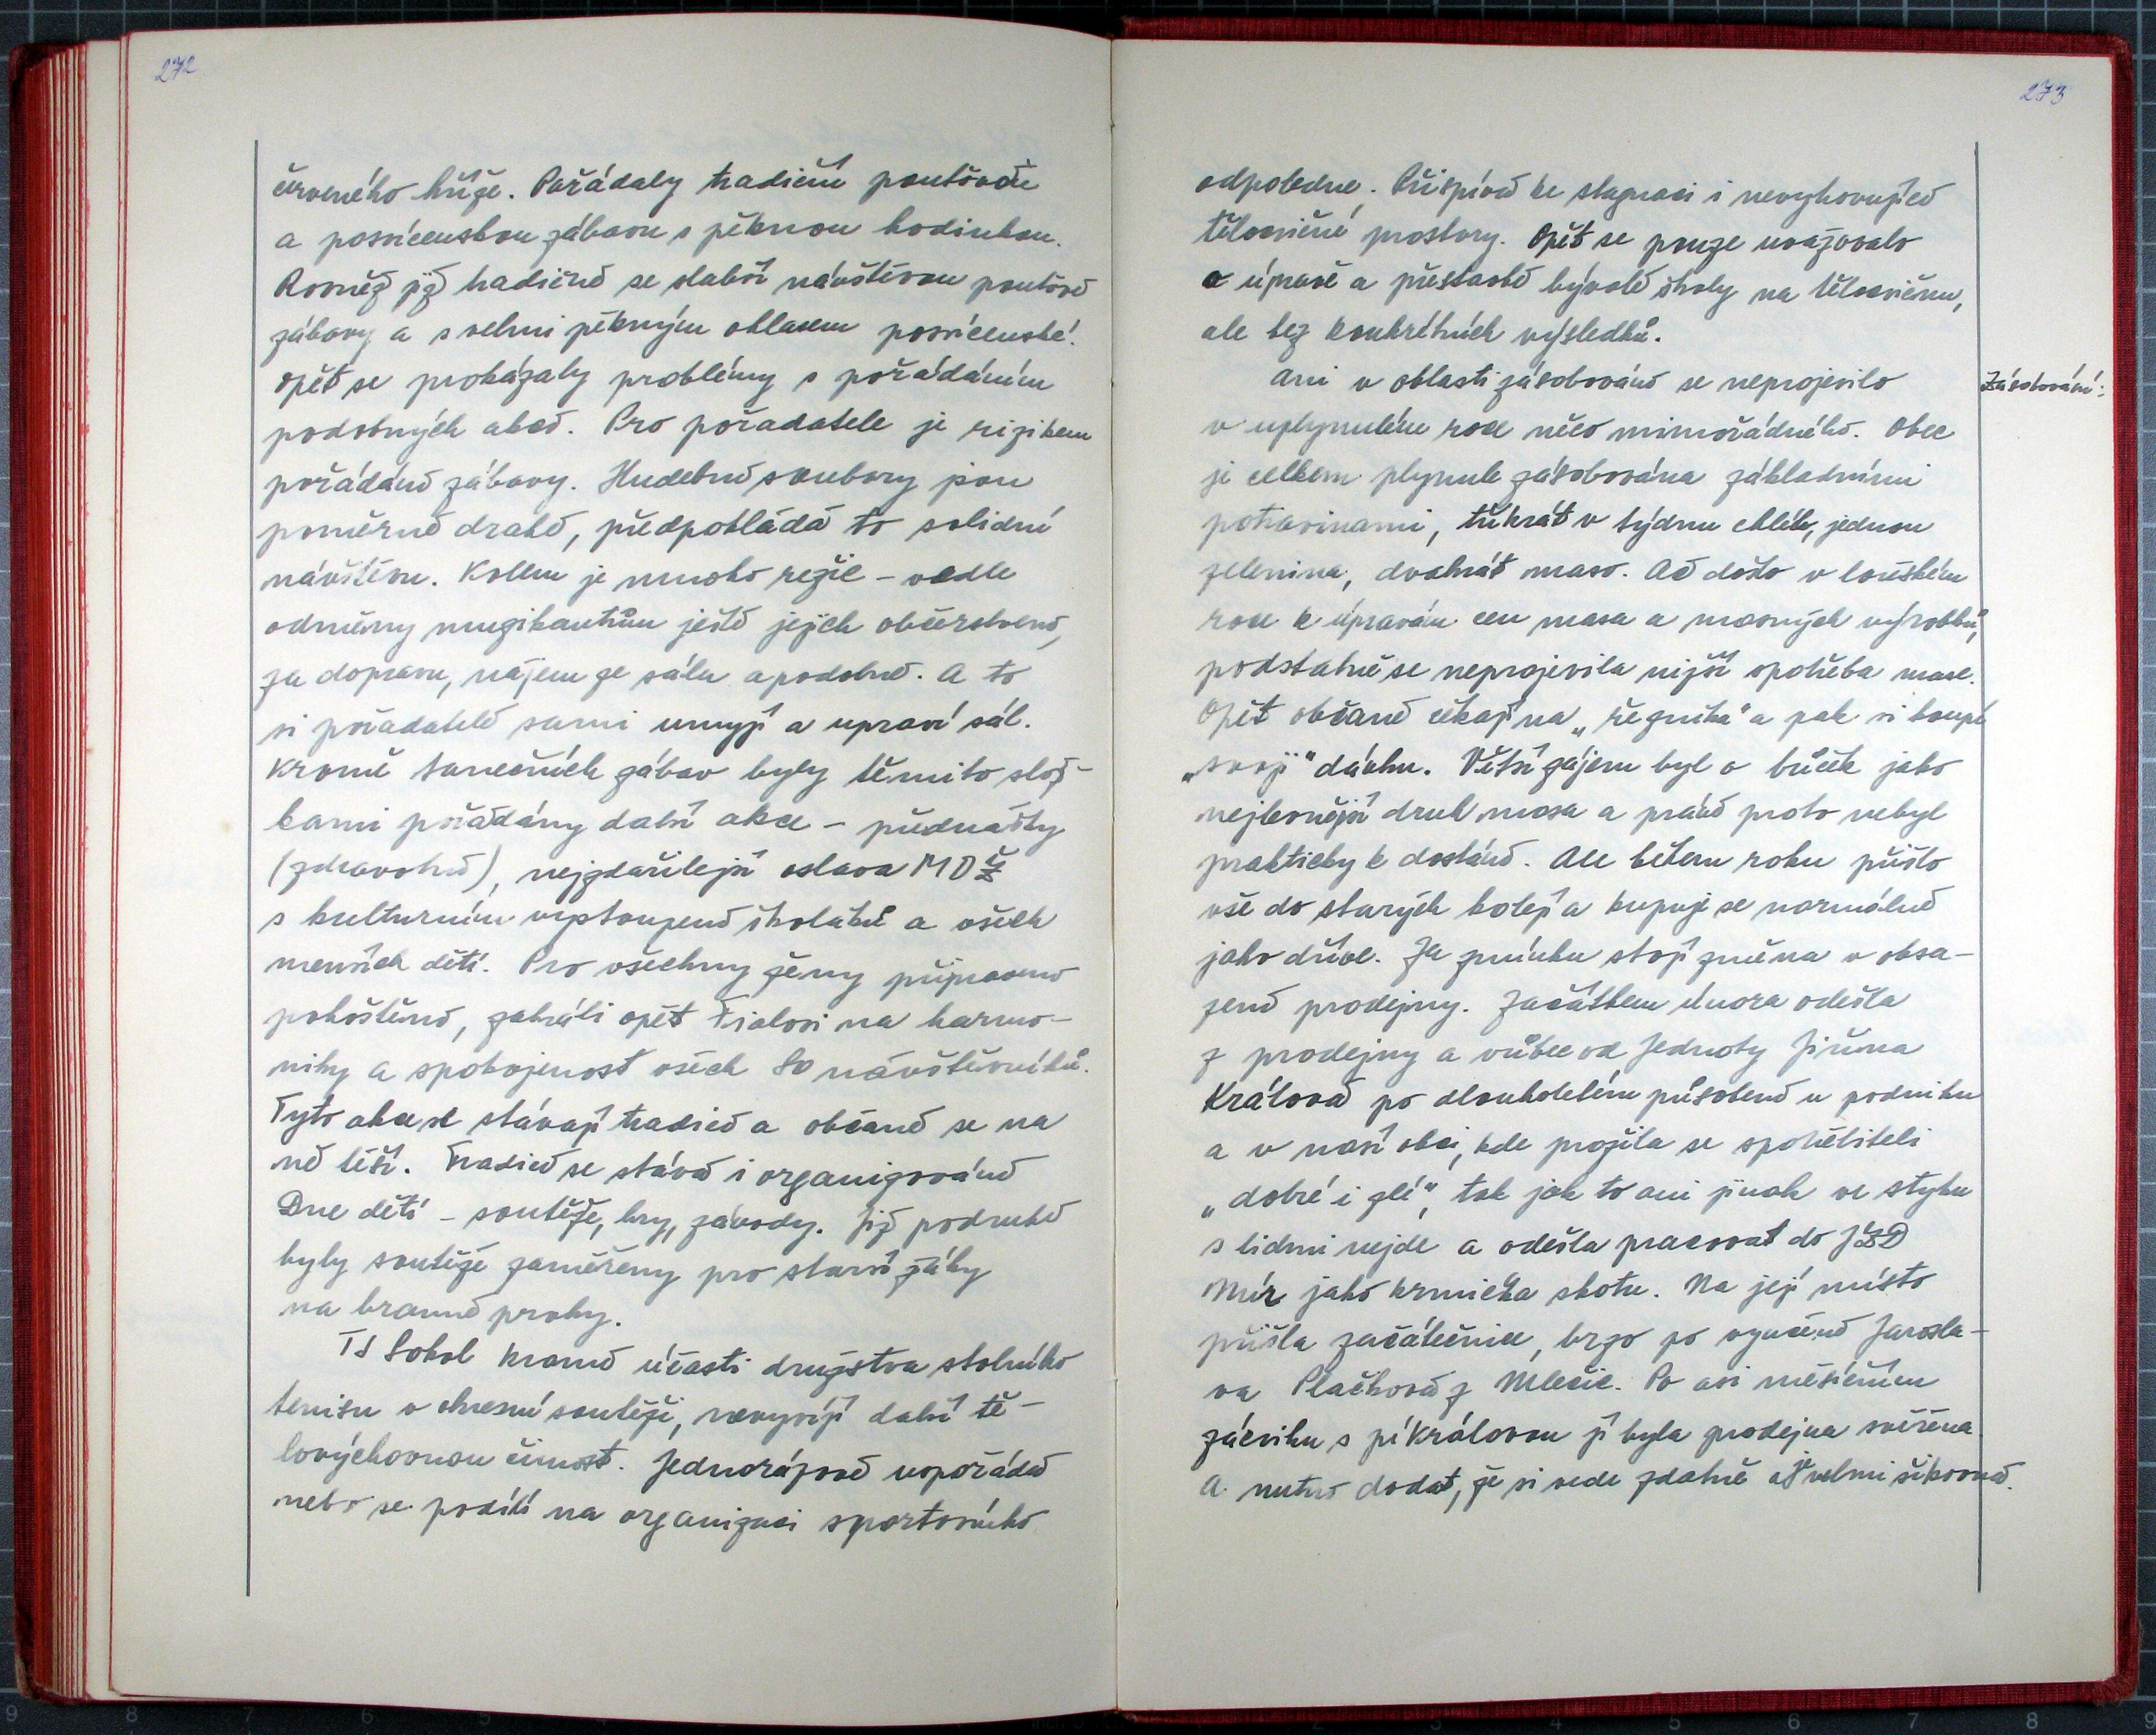 272
červeného kříže. Pořádaly tradiční pouťovou
a posvícenskou zábavu s pěknou hodinkou.
Rovněž již tradičně se slabší návštěvou pouťové
zábavy a s velmi pěkným ohlasem posvícenské.
Opět se prokázaly problémy s pořádáním
podobných akcí. Pro pořadatele je rizikem
pořádání zábavy. Hudební soubory jsou
poměrně drahé, předpokládá to solidní
návštěvu. Kolem je mnoho režie - vedle
odměny muzikantům ještě jejich občerstvení,
za dopravu, nájem ze sálu a podobně. A to
si pořadatelé sami umyjí a upraví sál.
Kromě tanečních zábav byly těmito slož-
kami pořádány další akce - přednášky
(zdravotní), nejzdařilejší oslava MDŽ
s kulturním vystoupení školáků a všech
menších dětí. Pro všechny ženy připraveno
pohoštění, zahráli opět Fialovi na harmo-
niky a spokojenost všech 80 návštěvníků.
Tyto akce se stávají tradicí a občané se na
ně těší. Tradicí se stává i organizování
Dne dětí - soutěže, hry, závody. Již podruhé
byly soutěže zaměřeny pro starší žáky
na branné prvky.
TJ Sokol kromě účasti družstva stolního
tenisu v okresní soutěži, nevyvíjí další tě-
lovýchovnou činnost. Jednorázově uspořádá
nebo se podílí na organizaci sportovního
273
odpoledne. Přispívá ke stagnaci i nevyhovující
tělocvičné prostory. Opět se pouze uvažovalo
o úpravě a přestavbě bývalé školy na tělocvičnu,
ale bez konkrétních výsledků.
Zásobování:
Ani v oblasti zásobování se neprojevilo
v uplynulém roce něco mimořádného. Obec
je celkem plynule zásobována základními
potravinami, třikrát v týdnu chléb, jednou
zelenina, dvakrát maso. Ač došlo v loňském
roce k úpravám cen masa a masných výrobků,
podstatně se neprojevila nižší spotřeba masa.
Opět občané čekají na „řezníka" a pak si koupí
„svoji" dávku. Větší zájem byl o bůček jako
nejlevnější druh masa a právě proto nebyl
prakticky k dostání. Ale během roku přišlo
vše do starých kolejí a kupuje se normálně
jako dříve. Za zmínku stojí změna v obsa-
zení prodejny. Začátkem února odešla
z prodejny a vůbec od Jednoty Jiřina
Králová po dlouholetém působení u podniku
a v naší obci, kde prožila se spotřebiteli
„dobré i zlé", tak jak to ani jinak ve styku
s lidmi nejde a odešla pracovat do JZD
Mír jako krmička skotu. Na její místo
přišla začátečnice, brzo po vyučení Jarosla-
va Plačková z Mlečic. Po asi měsíčním
zácviku s pí Královou jí byla prodejna svěřena.
A nutno dodat, že si vede zdatně až velmi šikovně.